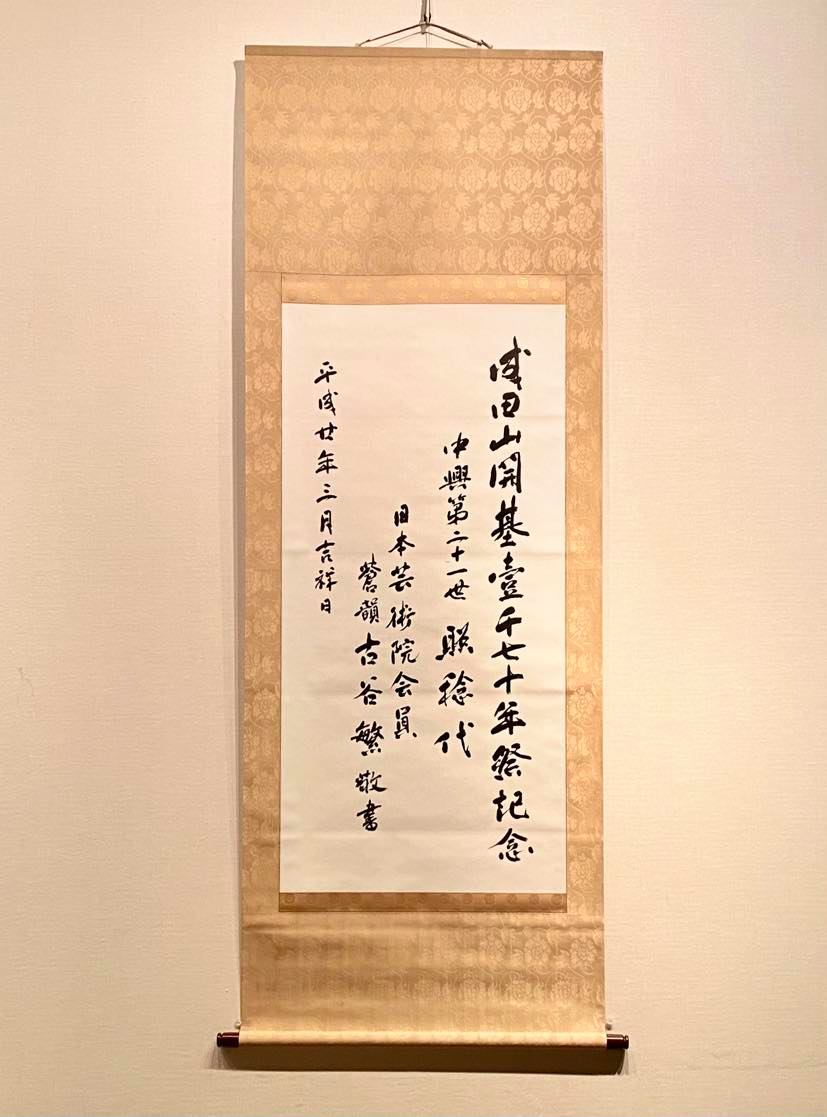 成田山開基壹千七十年祭記念
中興第二十一世 照稔代
日本芸術院会員
蒼韻 古谷繁 敬書
平成廿年三月吉祥日